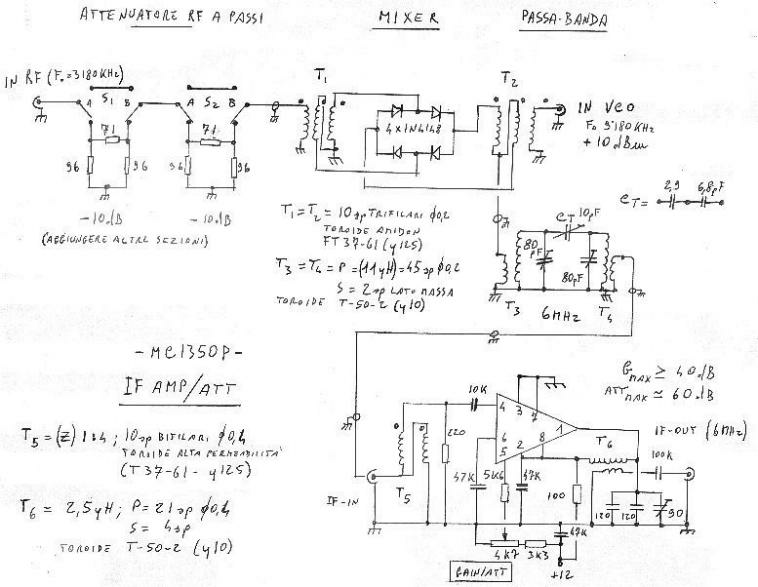 ATTENUATORE RF A PASSI
MIXER
PASSA-BANDA
IN RF (Fo=3180KHz)
A S1 B
A S2 B
71
71
96
96
96
96
-10dB
-10dB
(AGGIUNGERE ALTRE SEZIONI)
T1
T2
4x1N4148
IN VCO
Fo 9180KHz
+10dBm
T1=T2=10sp TRIFILARI φ0,2
TOROIDE AMIDON
FT37-61 (μ125)
T3=T4=P=(11μH)=45sp φ0,2
S=2sp LATO MASSA
TOROIDE T-50-2 (μ10)
CT 10pF
80
pF
80pF
CT=
2,9
6,8pF
T3
6MHz
T4
-MC1350P-
IF AMP/ATT
GMAX ≥ 40dB
ATTMAX ≃ 60dB
T5=(Z) 1:4; 10sp BIFILARI φ0,4
TOROIDE ALTA PERMEABILITA'
(T37-61-μ125)
T6=2,5μH; P=21sp φ0,4
S=4sp
TOROIDE T-50-2 (μ10)
10K
220
4
3
7
6
5
2
8
1
T6
IF-OUT (6MHz)
100K
47K
5K6
47K
100
120
120
90
IF-IN
T5
4K7
3K3
47K
+12
GAIN/ATT